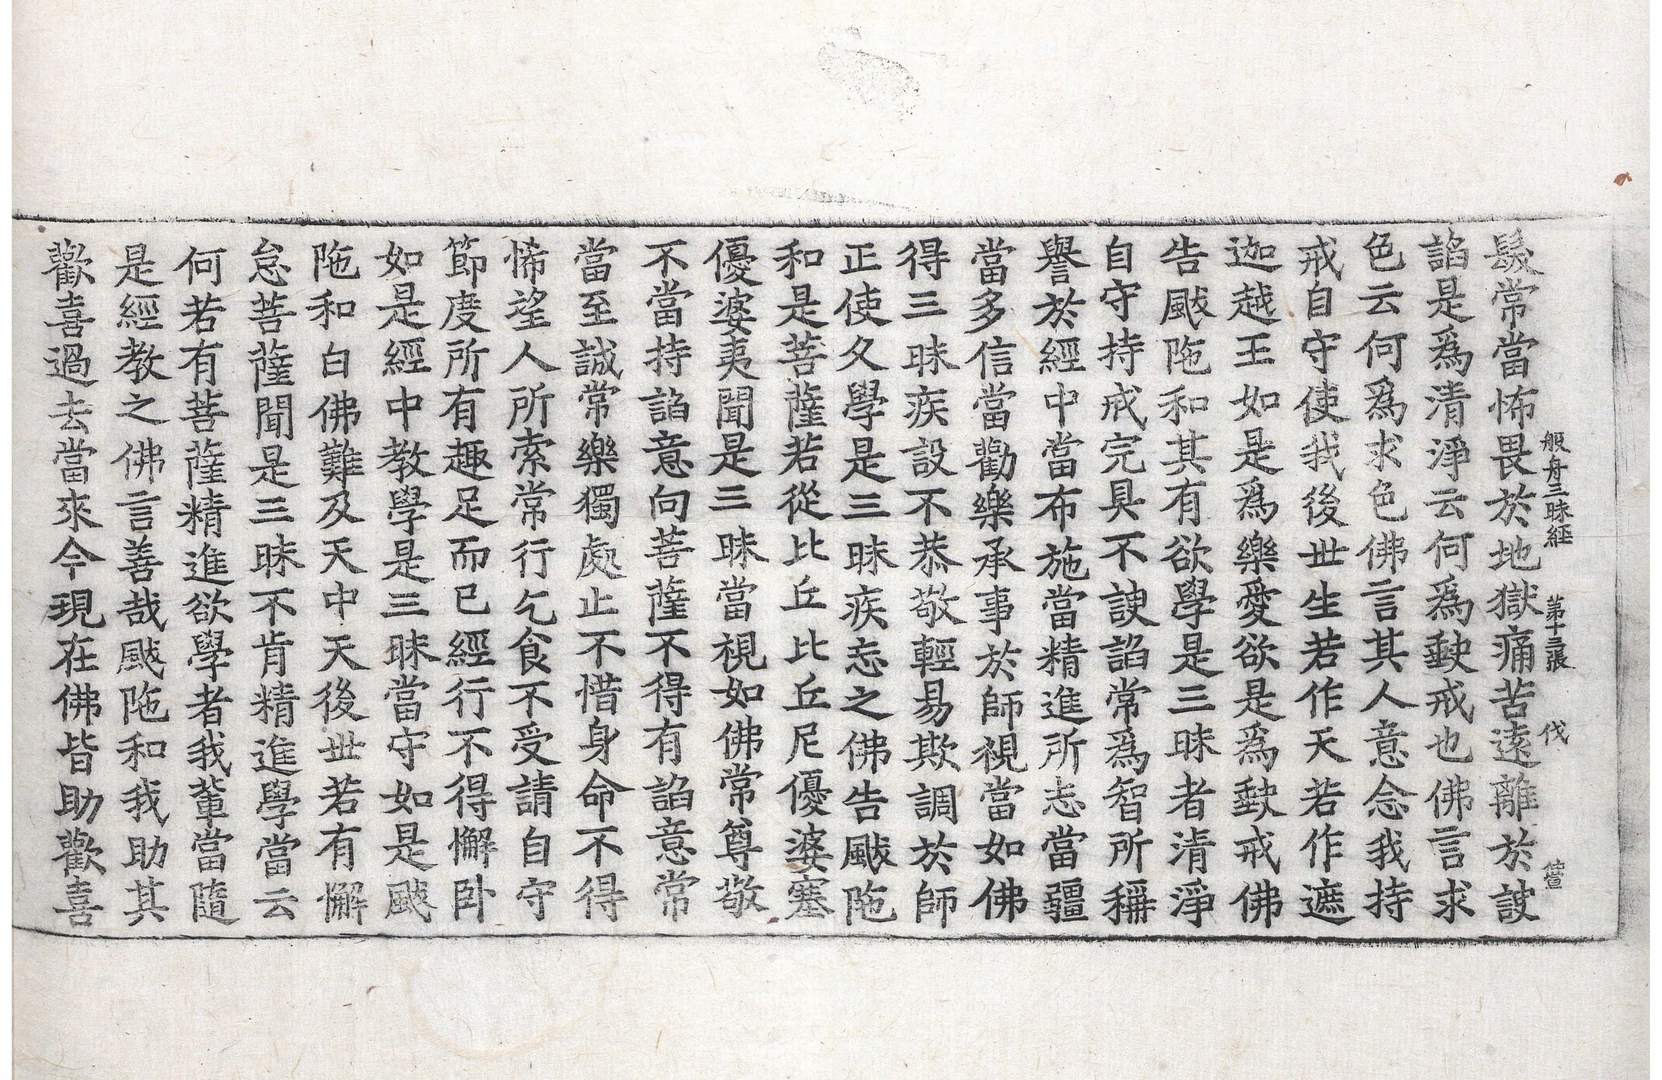 般舟三昧經 第十三張 伐
髮常當怖畏於地獄痛苦遠離於諛
諂是爲清淨云何爲缺戒也佛言求
色云何爲求色佛言其人意念我持
戒自守使我後世生若作天若作遮
迦越王如是爲樂愛欲是爲缺戒佛
告颰陁和其有欲學是三昧者清淨
自守持戒完具不諛諂常爲智所稱
譽於經中當布施當精進所志當彊
當多信當勸樂承事於師視當如佛
得三昧疾設不恭敬輕易欺調於師
正使久學是三昧疾忘之佛告颰陁
和是菩薩若從比丘比丘尼優婆塞
優婆夷聞是三昧當視如佛常尊敬
不當持諂意向菩薩不得有諂意常
當至誠常樂獨處止不惜身命不得
悕望人所索常行乞食不受請自守
節度所有趣足而已經行不得懈卧
如是經中教學是三昧當守如是颰
陁和白佛難及天中天後世若有懈
怠菩薩聞是三昧不肯精進學當云
何若有菩薩精進欲學者我輩當隨
是經教之佛言善哉颰陁和我助其
歡喜過去當來今現在佛皆助歡喜